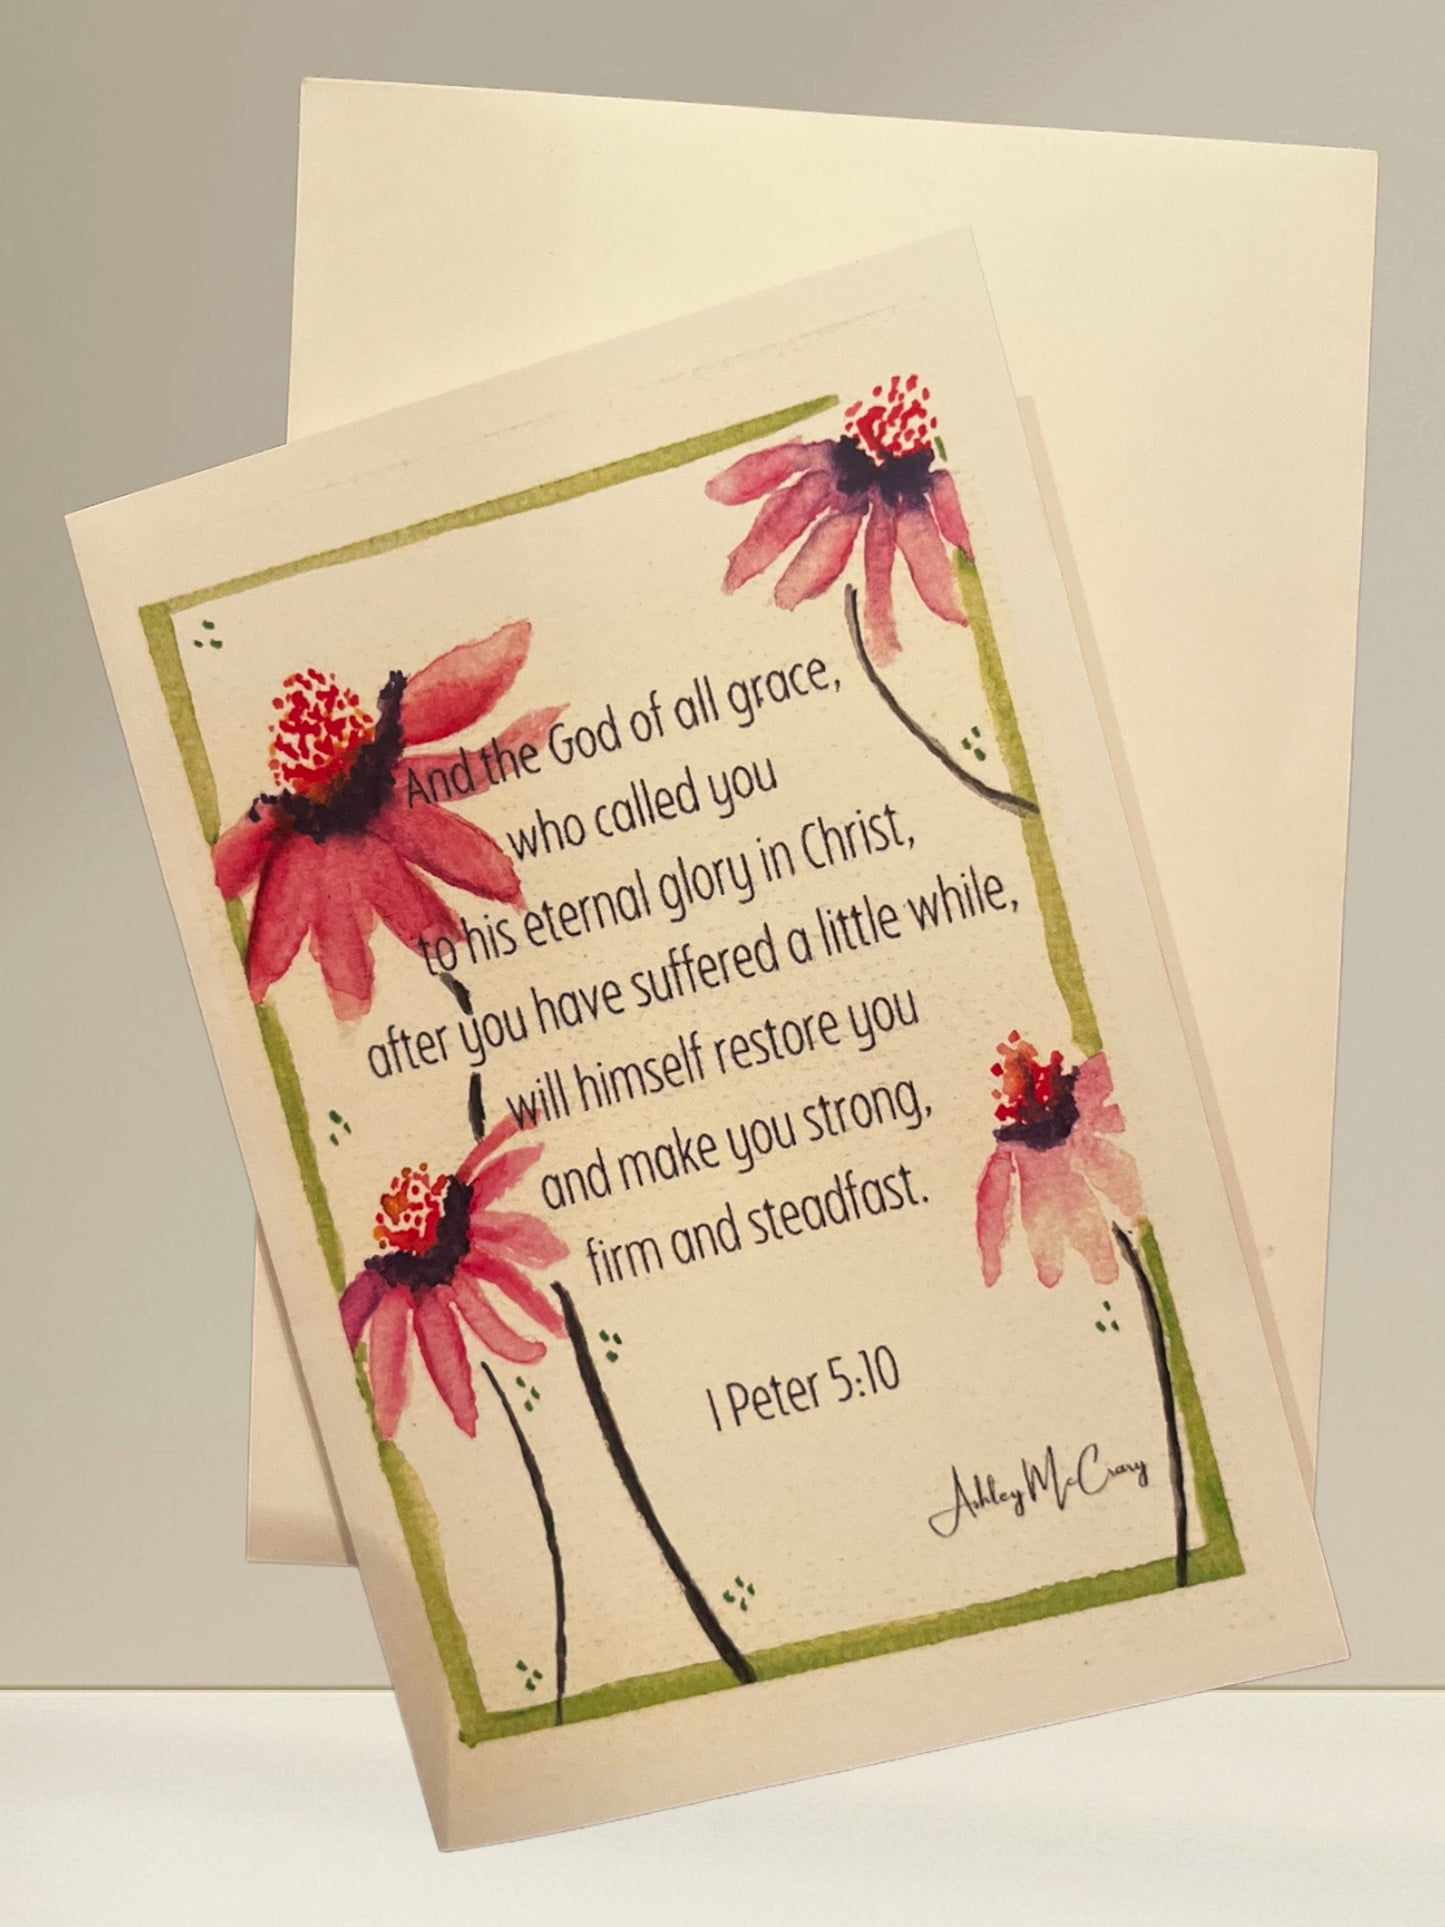 And the God of all grace,
who called you
to his eternal glory in Christ,
after you have suffered a little while,
will himself restore you
and make you strong,
firm and steadfast.
1 Peter 5:10
Ashley McCrary